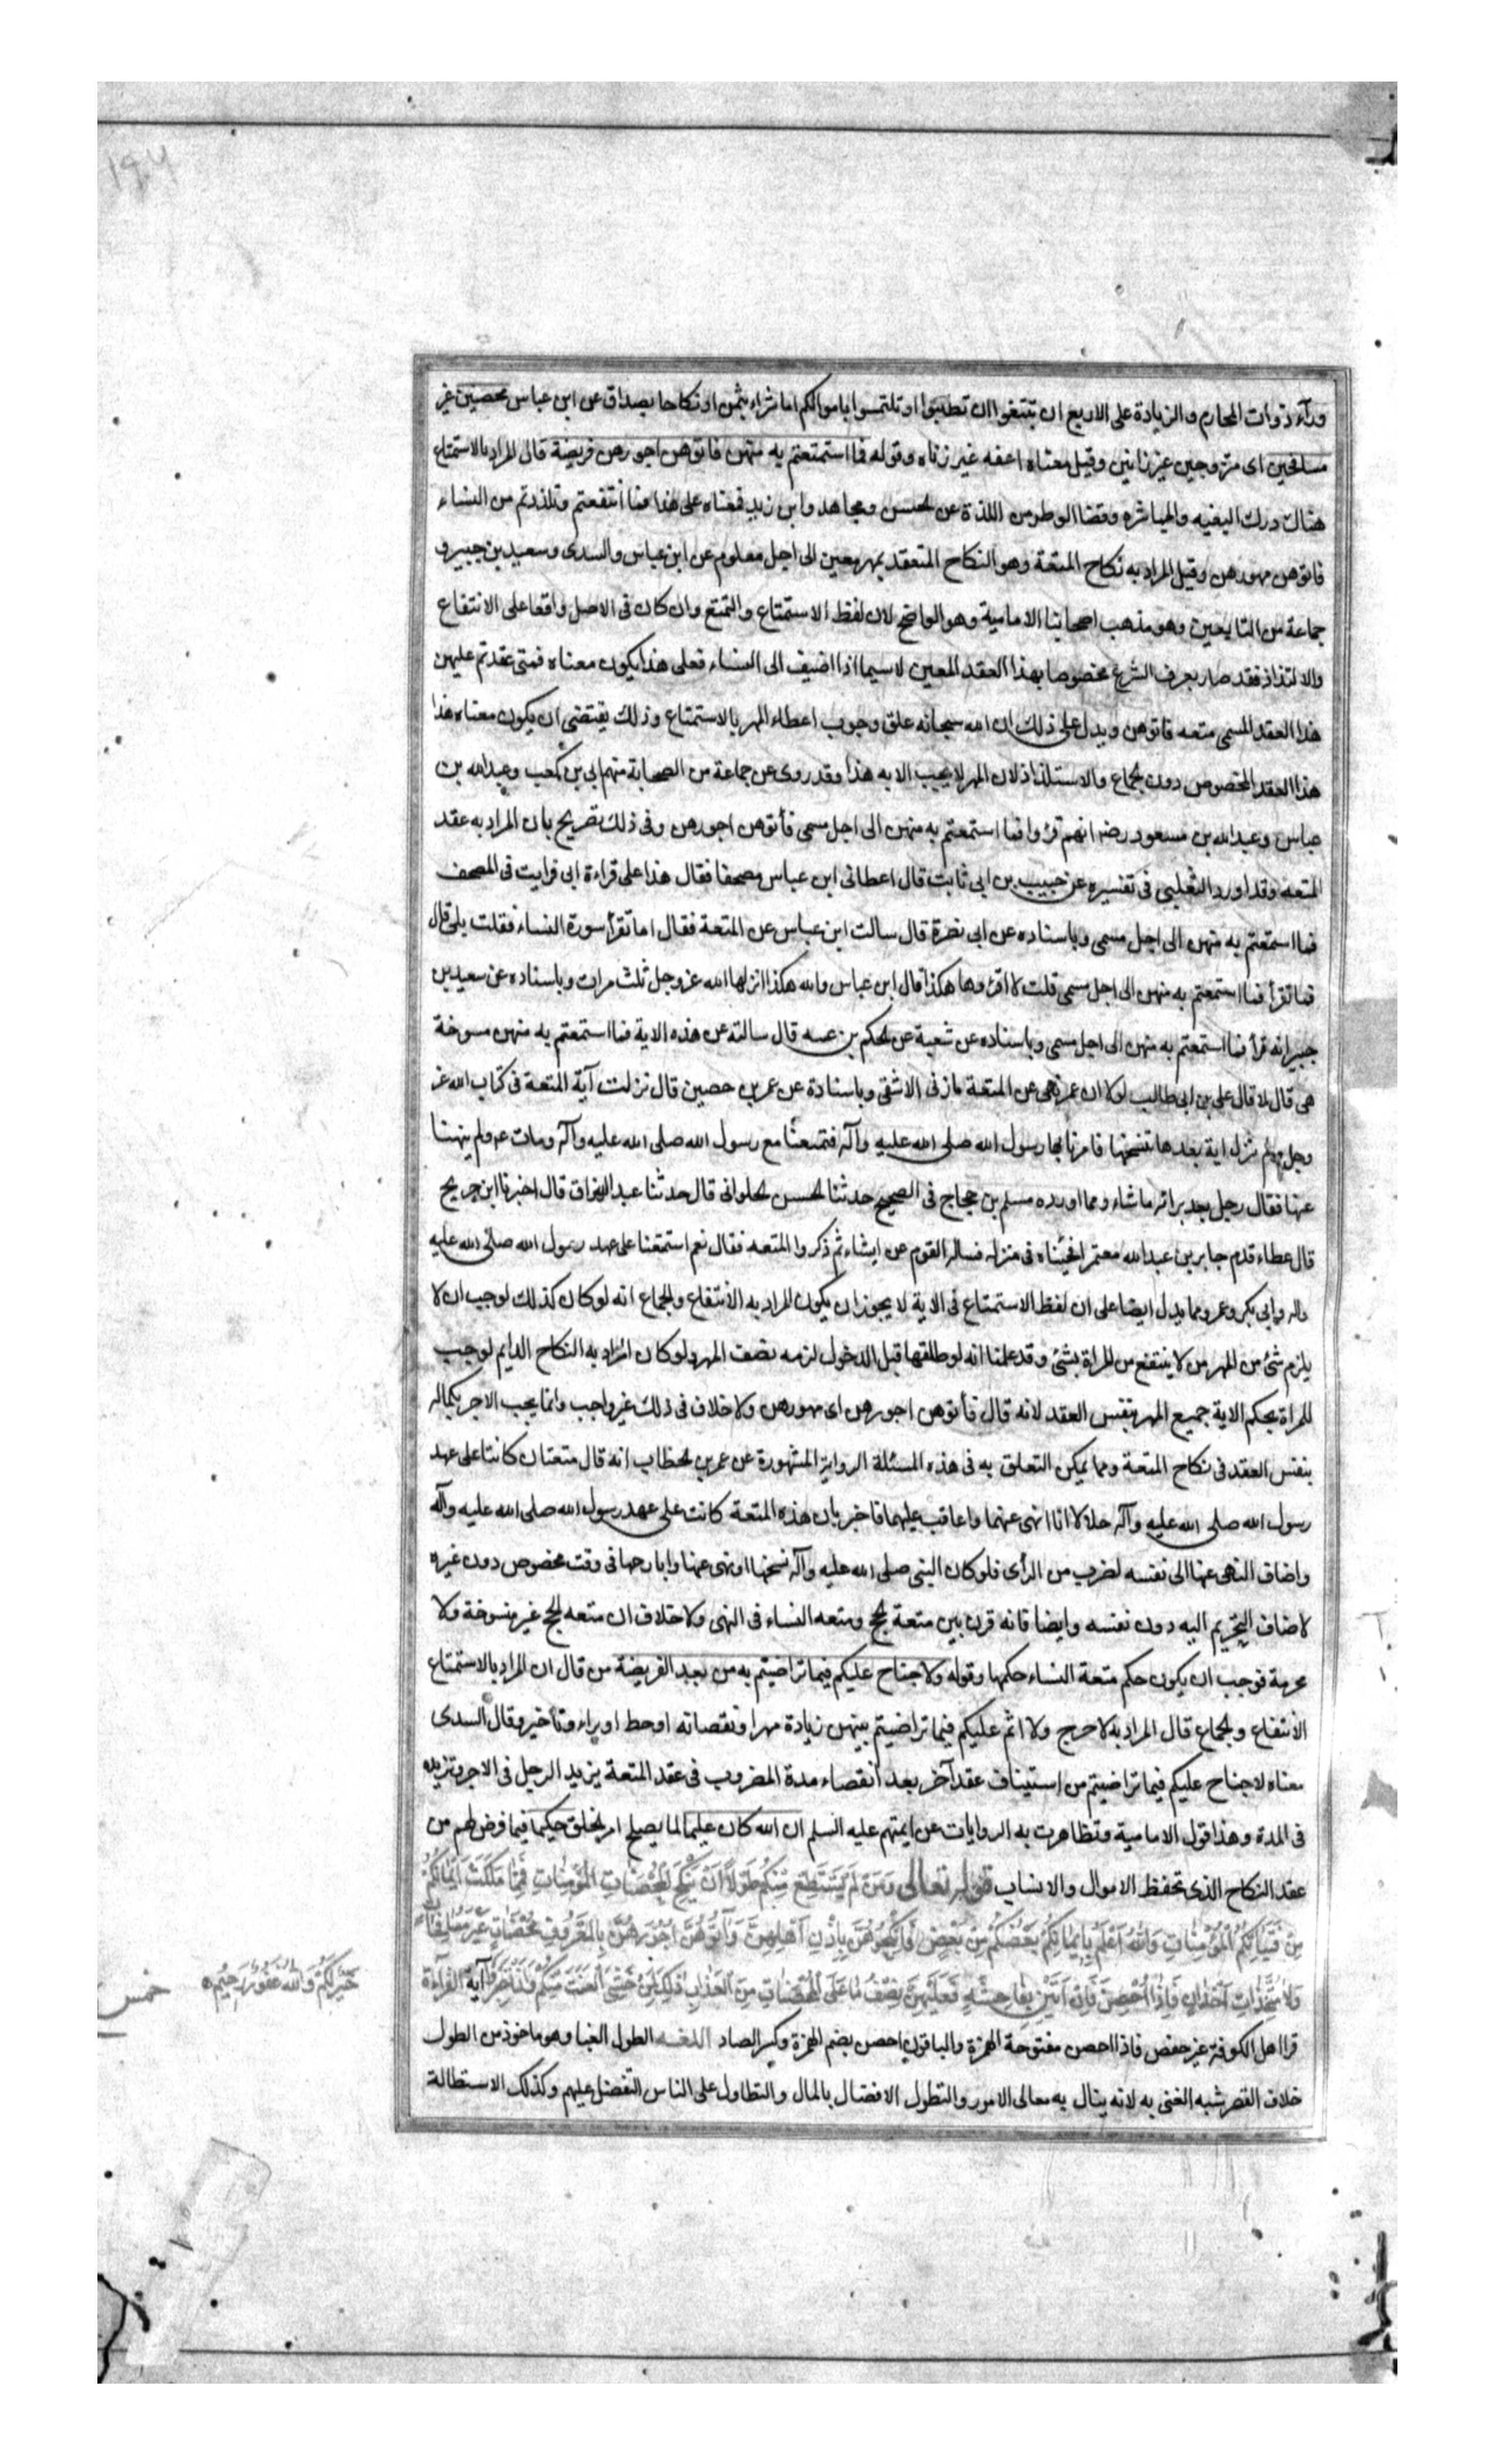 ورآء ذوات المحارم والزيادة على الاربع ان تبتغوا ان تطلبوا او تلتمسوا باموالكم اما شراء بثمن او نكاحا بصداق عن ابن عباس محصنين غير
مسافحين اى متزوجين غير زانين وقيل معناه اعفه غير زناه وقوله فما استمتعتم به منهن فاتوهن اجورهن فريضة قال المراد بالاستمتاع
هناك درك البغيه والمباشره وقضا الوطر من اللذة عن الحسن ومجاهد وابن زيد فمعناه على هذا فما انتفعتم وتلذذتم من النساء
فاتوهن مهورهن وقيل المراد به نكاح المتعة وهو النكاح المنعقد بمهر معين الى اجل معلوم عن ابن عباس والسدى وسعيد بن جبير و
جماعة من التابعين وهو مذهب اصحابنا الامامية وهو الواضح لان لفظ الاستمتاع والتمتع وان كان فى الاصل واقعا على الانتفاع
والالتذاذ فقد صار بعرف الشرع مخصوصا بهذا العقد المعين لاسيما اذا اضيف الى النساء فعلى هذا يكون معناه فمتى عقدتم عليهن
هذا العقد المسمى متعه فاتوهن ويدل على ذلك ان الله سبحانه علق وجوب اعطاء المهر بالاستمتاع وذلك يقتضى ان يكون معناه هذا
هذا العقد المخصوص دون الجماع والاستلذاذ لان المهر لا يجب الا به هذا وقد روى عن جماعة من الصحابة منهم ابى بن كعب وعبد الله بن
عباس وعبد الله بن مسعود رضه انهم قرؤا فما استمتعتم به منهن الى اجل مسمى فأتوهن اجورهن وفى ذلك تصريح بان المراد به عقد
المتعه وقد اورد الثعلبى فى تفسيره عن حبيب بن ابى ثابت قال اعطانى ابن عباس مصحفا فقال هذا على قراءة ابى فرايت فى المصحف
فما استمتعتم به منهن الى اجل مسمى وباسناده عن ابى نضرة قال سالت ابن عباس عن المتعة فقال اما تقرأ سورة النساء فقلت بلى قال
فما تقرأ فما استمتعتم به منهن الى اجل مسمى قلت لا اقرؤها هكذا قال ابن عباس والله هكذا انزلها الله عز وجل ثلث مرات وباسناده عن سعيد بن
جبير انه قرأ فما استمتعتم به منهن الى اجل مسمى وباسناده عن شعبة عن الحكم بن قال سالته عن هذه الاية فما استمتعتم به منهن منسوخة
هى قال لا قال على بن ابى طالب لولا ان عمر نهى عن المتعة ما زنى الا شقى وباسنادة عن عمر بن حصين قال نزلت آية المتعة فى كتاب الله عز
وجل ولم تنزل اية بعدها تنسخها فامرنا بها رسول الله صلى الله عليه وآله فتمتعنا مع رسول الله صلى الله عليه وآله ومات ولم ينهنا
عنها فقال رجل بعد برائه ما شاء ومما اورده مسلم بن حجاج فى الصحيح حدثنا الحسن الحلوانى قال حدثنا عبد الرزاق قال اخبرنا ابن جريح
قال عطاء قدم جابر بن عبد الله معتمرا فجئناه فى منزله فساله القوم عن اشياء ثم ذكروا المتعه فقال نعم استمتعنا على عهد رسول الله صلى الله عليه
واله وابى بكر وعمر ومما يدل ايضا على ان لفظ الاستمتاع فى الاية لا يجوز ان يكون المراد به الانتفاع والجماع انه لو كان كذلك لوجب ان لا
يلزم شئ من المهر من لا ينتفع من المراة بشئ وقد علمنا انه لو طلقها قبل الدخول لزمه نصف المهر ولو كان المراد به النكاح الدايم لوجب
للمراة بحكم الاية جميع المهر بنفس العقد لانه قال فأتوهن اجورهن اى مهورهن ولا خلاف فى ذلك غير واجب وانما يجب الاجر بكماله
بنفس العقد فى نكاح المتعة ومما يمكن التعلق به فى هذه المسئلة الرواية المشهورة عن عمر بن الخطاب انه قال متعتان كانتا على عهد
رسول الله صلى الله عليه وآله حلالا انا انهى عنهما واعاقب عليهما فاخبر بان هذه المتعة كانت على عهد رسول الله صلى الله عليه وآله
واضاف النهى عنها الى نفسه لضرب من الرأى فلو كان النبى صلى الله عليه وآله نسخها او نهى عنها واباحها فى وقت مخصوص دون غيره
لاضاف التحريم اليه دون نفسه وايضا فانه قرن بين متعة الحج ومتعه النساء فى النهى ولا خلاف ان متعه الحج غير منسوخة ولا
محرمة فوجب ان يكون حكم متعة النساء حكمها وقوله ولا جناح عليكم فيما تراضيتم به من بعد الفريضة من قال ان المراد بالاستمتاع
الانتفاع والجماع قال المراد به لا حرج ولا اثم عليكم فيما تراضيتم بينهن زيادة مهر او نقصانه او حط او براء وتأخير وقال السدى
معناه لا جناح عليكم فيما تراضيتم من استيناف عقد آخر بعد انقضاء مدة المضروب فى عقد المتعة يزيد الرجل فى الاجر وتزيده
فى المدة وهذا قول الامامية وتظاهرت به الروايات عن ائمتهم عليه السلم ان الله كان عليما لما يصلح امر الخلق حكيما فيما فرض لهم من
عقد النكاح الذى تحفظ الاموال والانساب قوله تعالى وَمَنْ لَمْ يَسْتَطِعْ مِنْكُمْ طَوْلًا اَنْ يَنْكِحَ الْمُحْصَنَاتِ الْمُؤْمِنَاتِ فَمِمَّا مَلَكَتْ اَيْمَانُكُمْ
مِنْ فَتَيَاتِكُمُ الْمُؤْمِنَاتِ وَاللهُ اَعْلَمُ بِاِيمَانِكُمْ بَعْضُكُمْ مِنْ بَعْضٍ فَانْكِحُوهُنَّ بِاِذْنِ اَهْلِهِنَّ وَآتُوهُنَّ اُجُورَهُنَّ بِالْمَعْرُوفِ مُحْصَنَاتٍ غَيْرَ مُسَافِحَاتٍ
وَلَا مُتَّخِذَاتِ اَخْدَانٍ فَاِذَا اُحْصِنَّ فَاِنْ اَتَيْنَ بِفَاحِشَةٍ فَعَلَيْهِنَّ نِصْفُ مَا عَلَى الْمُحْصَنَاتِ مِنَ الْعَذَابِ ذٰلِكَ لِمَنْ خَشِىَ الْعَنَتَ مِنْكُمْ وَاَنْ تَصْبِرُوا آية القراءة
خَيْرٌ لَكُمْ وَاللهُ غَفُورٌ رَحِيمٌ خمس
قرا اهل الكوفة غير حفص فاذا احصن مفتوحة الهمزة والباقون احصن بضم الهمزة وكسر الصاد اللغة الطول الغنا وهو ماخوذ من الطول
خلاف القصر شبه الغنى به لانه ينال به معالى الامور والتطول الافضال بالمال والتطاول على الناس التفضل عليهم وكذلك الاستطالة